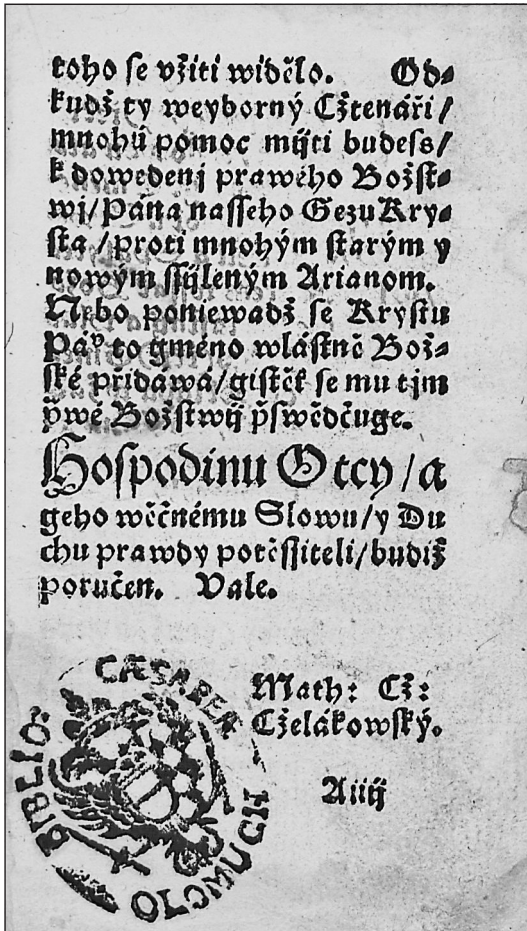 toho se vžiti widělo. Od⸗
kudž ty weyborný Cžtenáři/
mnohú pomoc mijti budeſs/
k dowedenj prawého Božſt⸗
wj/ Pána naſſeho Gezu Kry⸗
ſta / proti mnohým ſtarým y
nowým ſſijleným Arianom.
Nebo poniewadž ſe Kryſtu
Páᵛ to gméno wláſtně Bož⸗
ſké přidáwá/ giſtěť ſe mu tjm
p̄wé Božſtwij p̄ſwědčuge.
Hoſpodinu Otcy/ a
geho wěčnému Slowu/ y Du
chu prawdy potěſſiteli/ budiž
poručen. Vale.
Math: Cž:
Cželákowſký.
Aiiij
BIBLIO: CÆSAREA
OLOMUCII